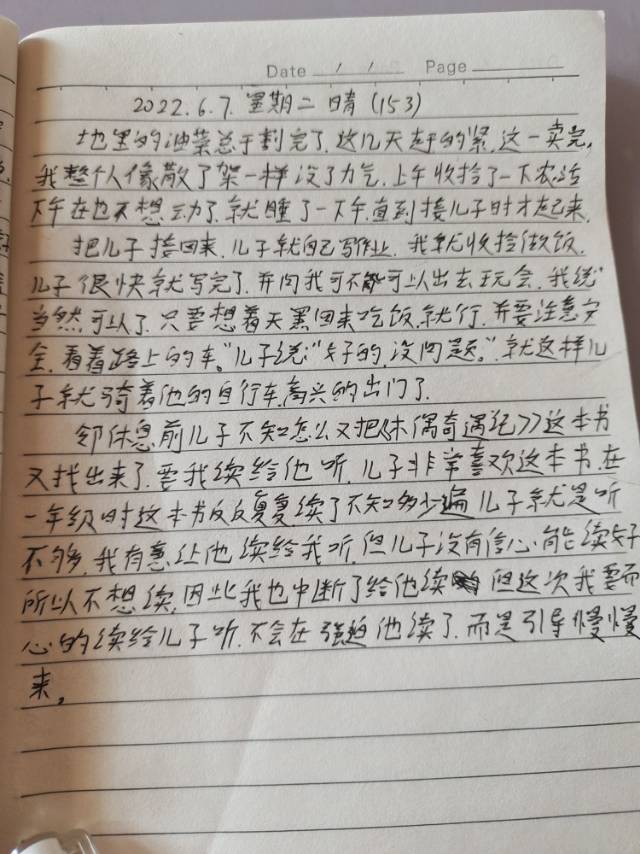 Date / / Page
2022.6.7. 星期二 晴 (153)
地里的油菜总于割完了.这几天赶的紧.这一卖完,
我整个人像散了架一样没了力气.上午收拾了一下农活
下午在也不想动了.就睡了一下午.直到接儿子时才起来.
把儿子接回来.儿子就自己写作业.我就收拾做饭.
儿子很快就写完了.并问我可不可以出去玩会.我说"
当然可以了.只要想着天黑回来吃饭.就行.并要注意安
全.看着路上的车."儿子说"好的.没问题."就这样儿
子就骑着他的自行车.高兴的出门了.
邻休息前儿子不知怎么又把《木偶奇遇记》这本书
又找出来了.要我续给他听.儿子非常喜欢这本书.在
一年级时这本书反反复复续了不知多少遍儿子就是听
不够.我有意让他续给我听.但儿子没有信心能续好
所以不想续.因此我也中断了给他续 但这次我要耐
心的续给儿子听.不会在强迫他续了.而是引导慢慢
来。